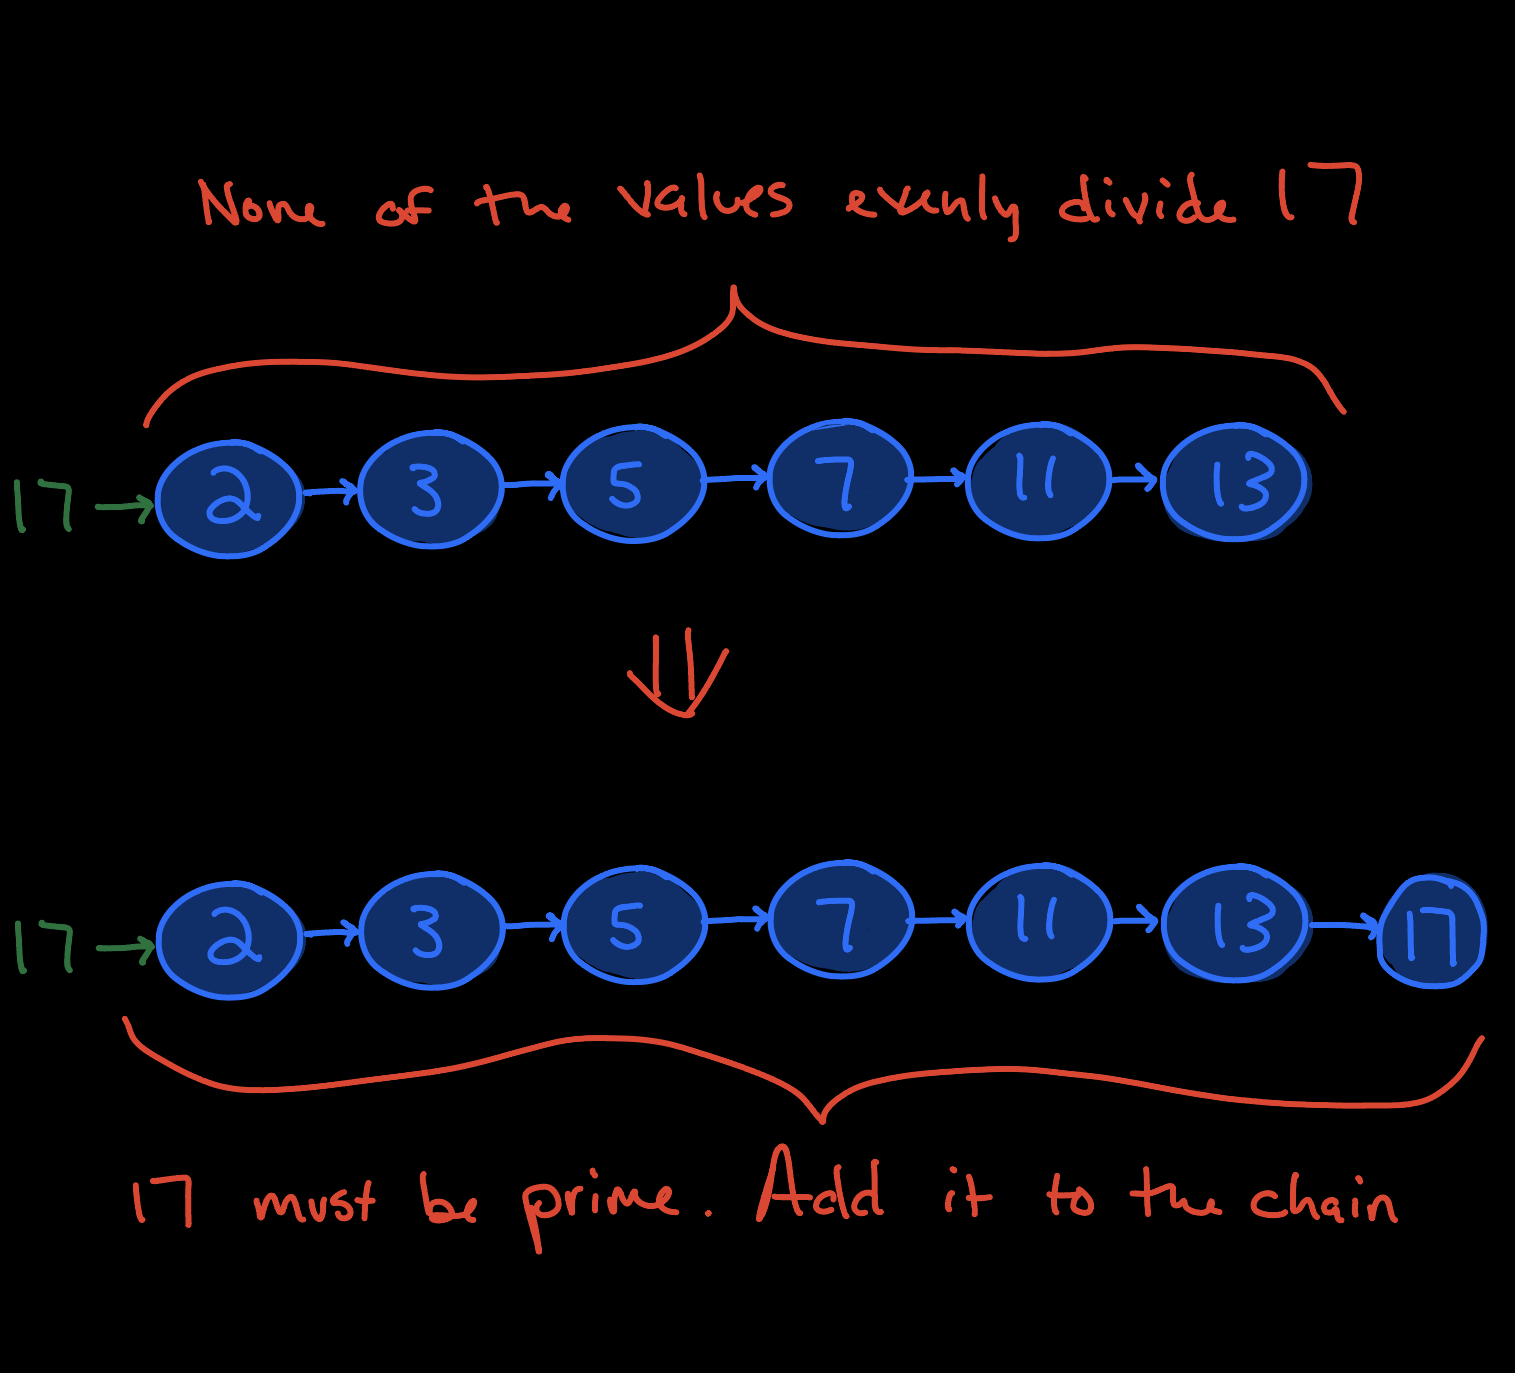 None of the values evenly divide 17
17 2 3 5 7 11 13
17 2 3 5 7 11 13 17
17 must be prime. Add it to the chain